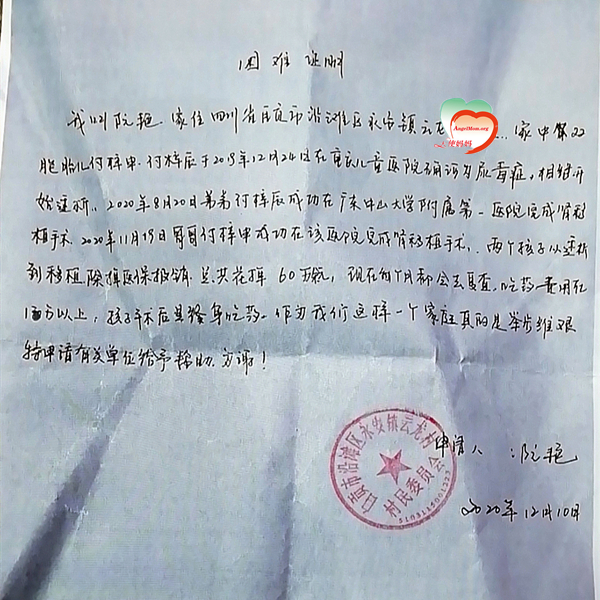 困难证明
我叫阮艳.家住四川省自贡市沿滩区永安镇云龙 ... 家中双
AngelMom.org
天使妈妈
胞胎儿付梓申.付梓辰于2019年12月24日在重庆儿童医院确诊为尿毒症,相继开
始透析.2020年8月20日弟弟付梓辰成功在广东中山大学附属第一医院完成肾移
植手术.2020年11月19日哥哥付梓申成功在该医院完成肾移植手术..两个孩子从透析
到移植除掉医保报销 总共花掉60万元,现在每个月都会去复查.吃药费用在
1万以上,孩子术后是终身吃药.作为我们这样一个家庭真的是举步维艰
特申请有关单位给予帮助.万谢!
申请人:阮艳
2020年12月10日
自贡市沿滩区永安镇云龙村
村民委员会
5103115001223